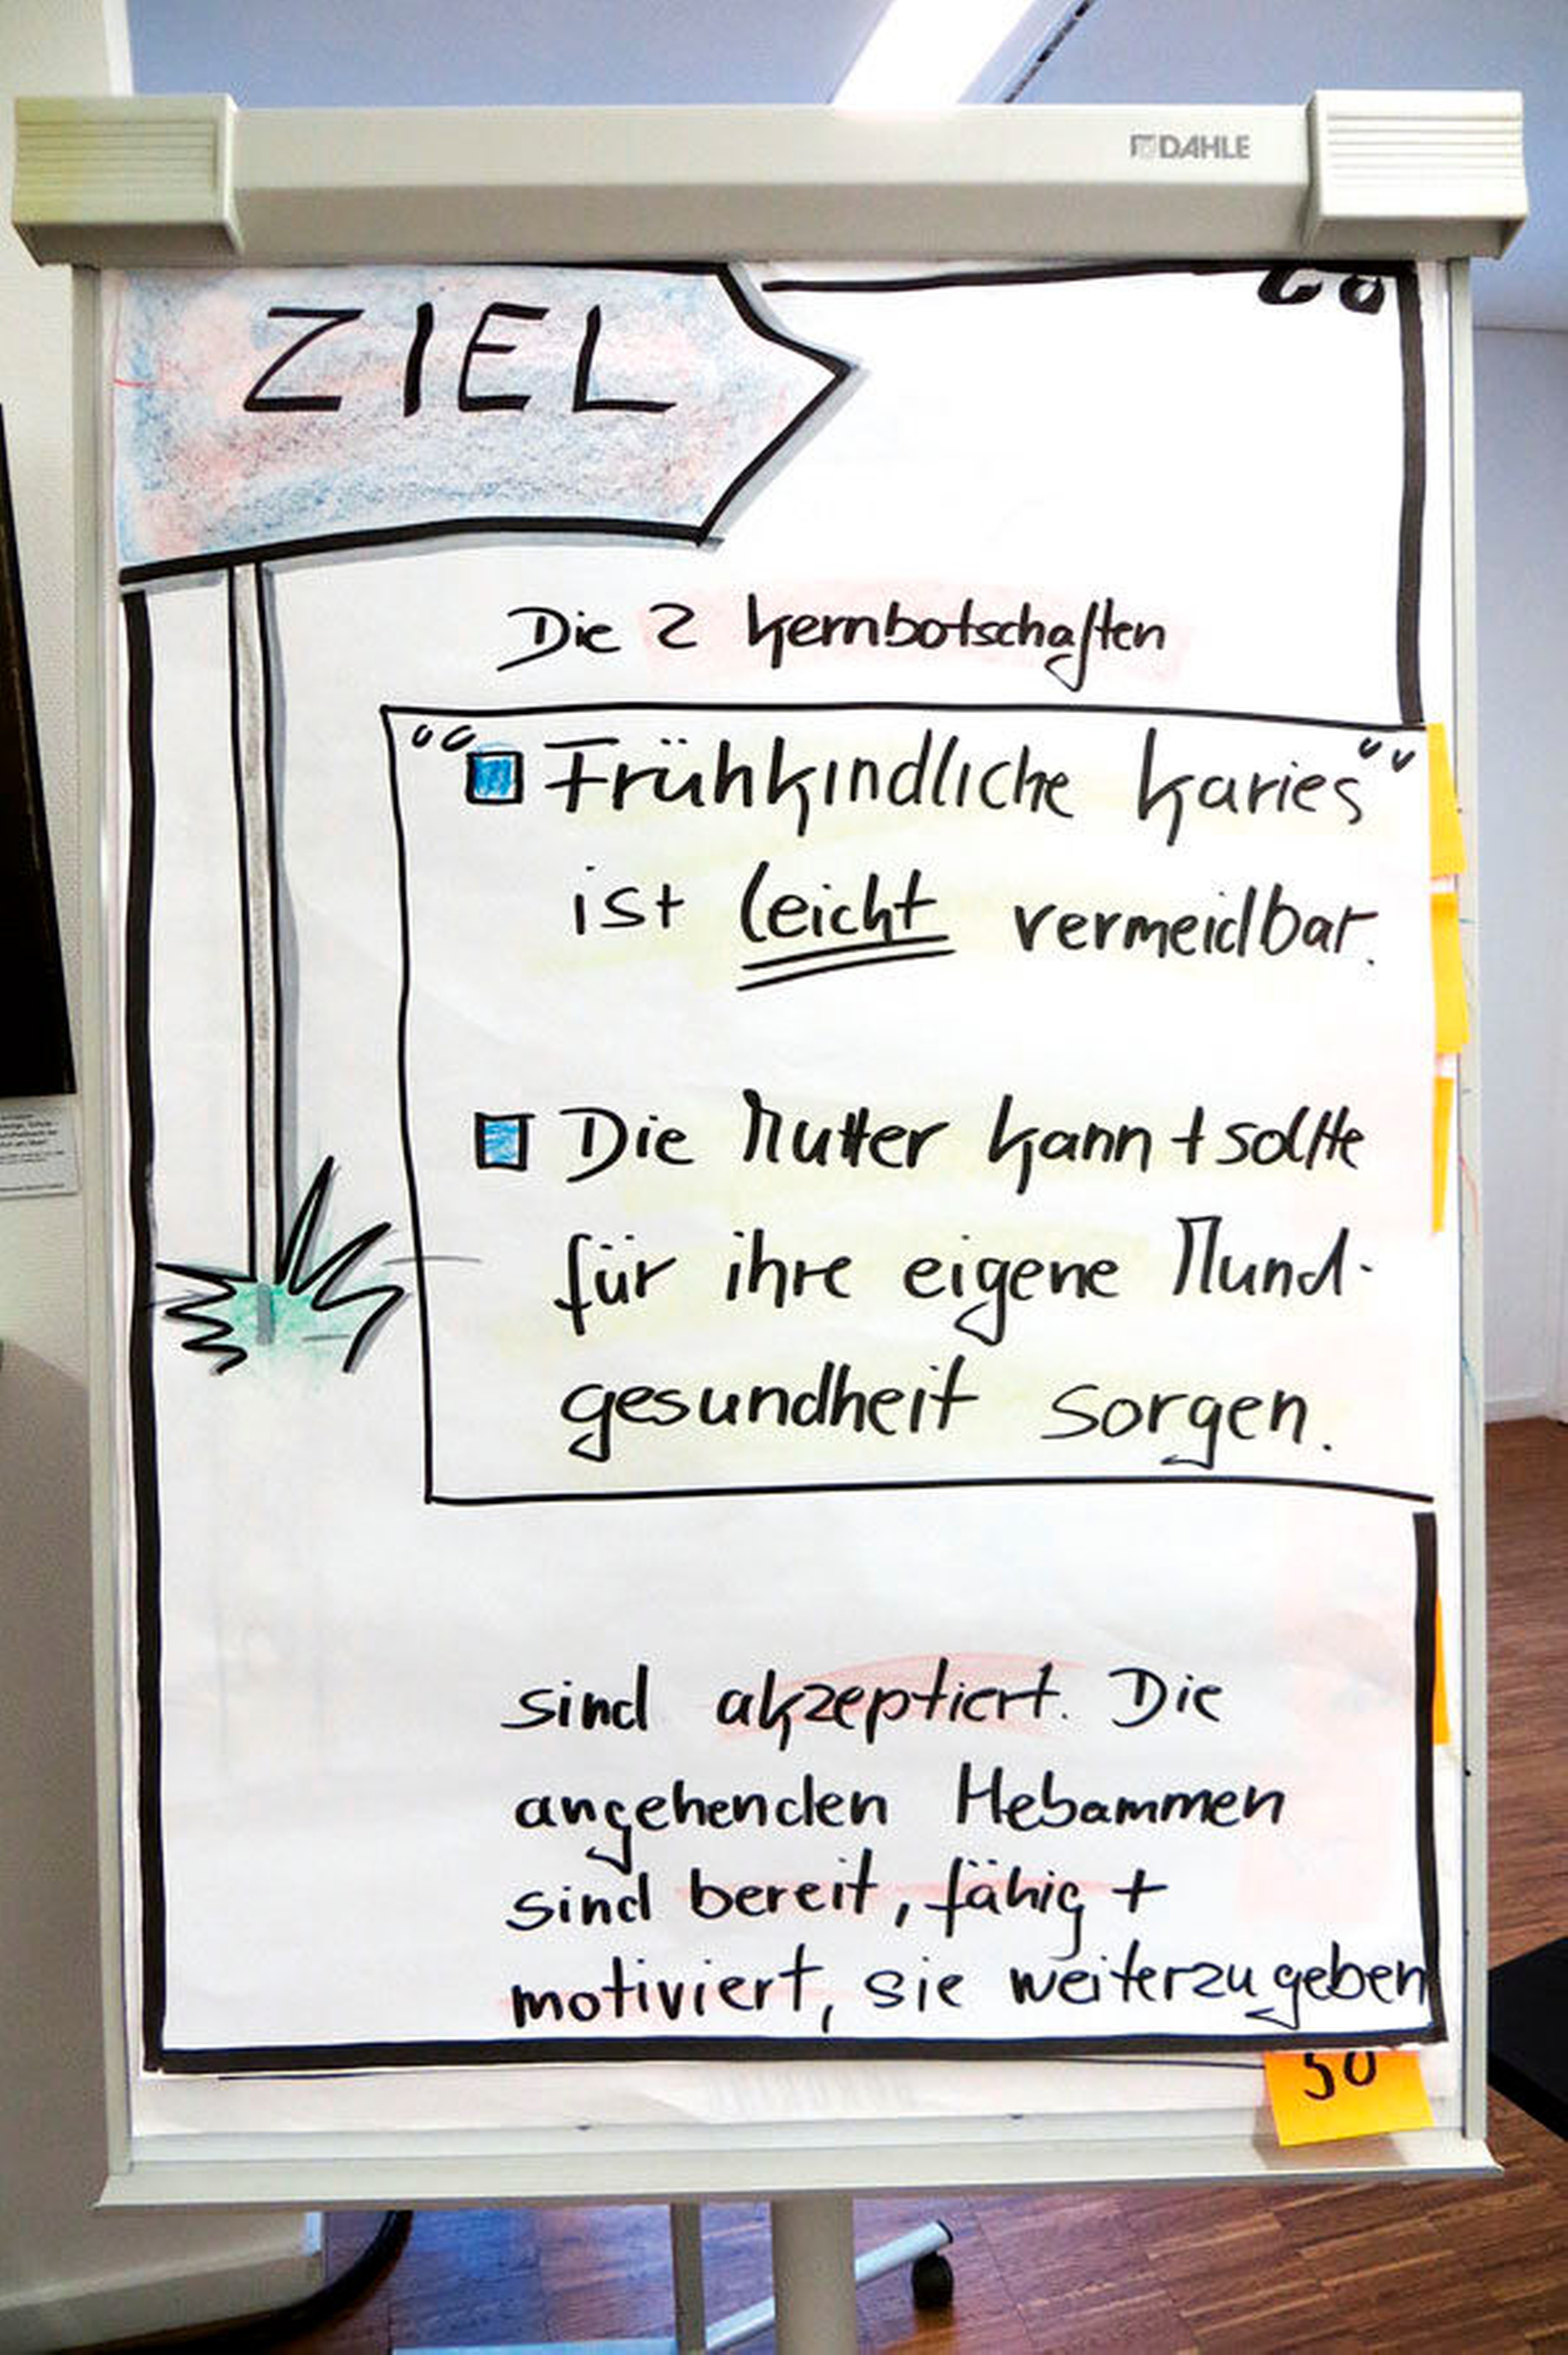 DAHLE
ZIEL
Die 2 Kernbotschaften
"■ Frühkindliche Karies"
ist leicht vermeidbar.
■ Die Mutter kann + sollte
für ihre eigene Mund-
gesundheit sorgen.
sind akzeptiert. Die
angehenden Hebammen
sind bereit, fähig +
motiviert, sie weiterzugeben